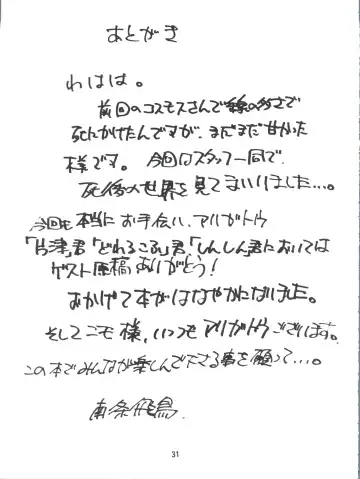 あとがき
わはは。
前回のコスモスさんで線の多さで
死にかけたんですが、まだまだ甘かった
様です。今回はスタッフ一同で、
死後の世界を見てまいりました…。
今回も本当にお手伝い、アリがトウ
「片津」君「どれるこる」君「しんしん」君においては
ゲスト原稿ありがとう!
おかげで本がはなやかになりました。
そしてこモ様、いつもアリがトウございます。
この本でみんなが楽しんで下さる事を願って…。
南条飛鳥.
31